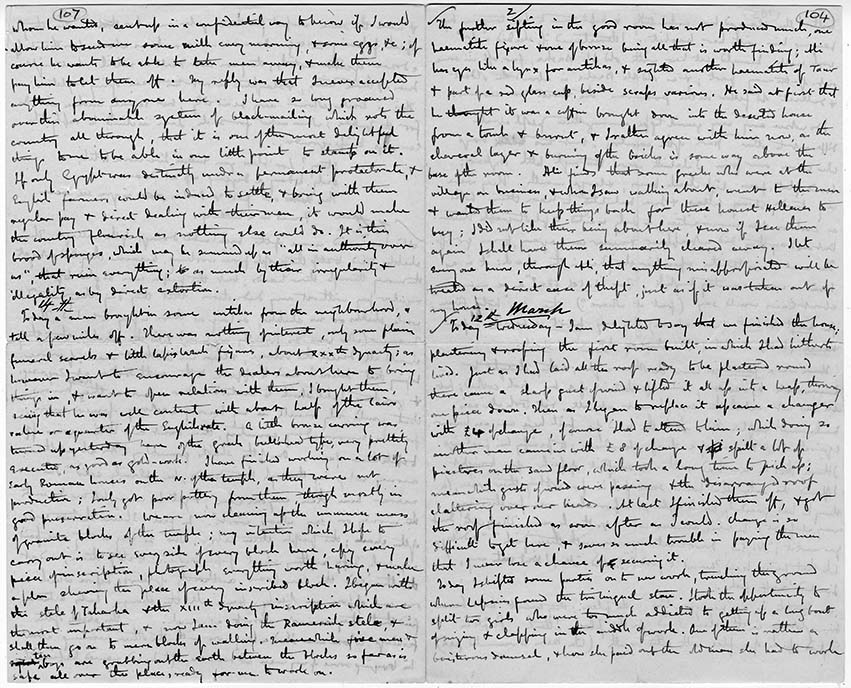 107
whom he wanted, sent up in a confidential way to know if I would
allow him to send me some milk every morning, & some eggs, &c; of
course he wants to be able to take men away, & make them
pay him to let them off. My reply was that I never accepted
anything from anyone here. I have so long groaned
over this abominable system of blackmailing which rots the
country all through, that it is one of the most delightful
things to me to be able in one little point to stamp on it.
If only Egypt was distinctly under a permanent protectorate, &
English farmers could be induced to settle, & bring with them
regular pay & direct dealing with their men, it would make
the country flourish as nothing else could do. It is this
brood of sponges, which may be summed up as "all in authority over
us" that ruin everything; as much by their irregularity &
illegality as by direct extortion.
14th
Today a man brought in some antikas from the neighbourhood, &
tell a few miles off. There was nothing of interest, only some plain
funereal scarabs & little lapis lazuli figures, about XXXth dynasty; as
however I want to encourage the dealers about here to bring
things in, & want to open relations with them, I bought them,
seeing that he was well content with about half of the Cairo
value or a quarter of the English rate. A little bronze carving was
turned up yesterday here of the greek bull's head type, very prettily
executed, as good as gold-work. I have finished working on a lot of
Early Roman houses on the N. of the temple, as they were not
productive; I only got poor pottery from them though mostly in
good preservation. We are now clearing up the immense mass
of granite blocks of the temple; my intention which I hope to
carry out is to see every side of every block here, copy every
piece of inscription, photograph everything worth having, & make
a plan showing the place of every inscribed block. I began with
the stele of Taharka & the XIIIth dynasty inscription which are
the most important, & now I am doing the Rameside stelae, &
shall then go on to mere blocks of walling. Meanwhile five men &
ten boys are grubbing out the earth between the blocks so far as is
safe all over the place, ready for me to work on.
2
104
The further sifting in the good room has not produced much, one
haematite figure & one of bronze being all that is worth finding; Ali
has eyes like a lynx for antikas, & sighted another haematite of Taur
& part of a red glass cup, beside scraps various. He said at first that
he thought it was a coffin brought down into the deserted house
from a tomb & burnt, & I rather agree with him now, as the
charcoal layer & burning of the bricks is some way above the
base of the room. Ali finds that some greeks who were at the
village on business, & who I saw walking about, went to the men
& wanted them to keep things back for these honest Hellenes to
buy; I did not like their being about here, & now if I see them
again I shall have them summarily cleared away. I let
every one know, through Ali, that anything misappropriated will be
treated as a direct case of theft, just as if it was taken out of
my house.
12th March
Today - Wednesday - I am delighted to say that we finished the house,
plastering & roofing the first room built, in which I had hitherto
lived. Just as I had laid all the roof ready to be plastered round
there came a sharp gust of wind & lifted it all up in a heap, throwing
one piece down. Then as I began to replace it up came a changer
with £4 of change, of course I had to attend to him; while doing so
another man came in with £8 of change & spilt a lot of
piastres on the sand floor, which took a long time to pick up;
meanwhile gusts of wind were passing & the disarranged roof
clattering over our heads. At last I finished them off, & got
the roof finished as soon after as I could. Change is so
difficult to get here & saves so much trouble in paying the men
that I never lose a chance of securing it.
Today I shifted some parties on to new work, trenching the ground
where Lepsius found the trilingual stone. I took the opportunity to
split two girls, who were too much addicted to getting up a tug bout
of singing & clapping in the middle of work. One of them is rather a
boisterous damsel, & how she paid out the old man she had to work